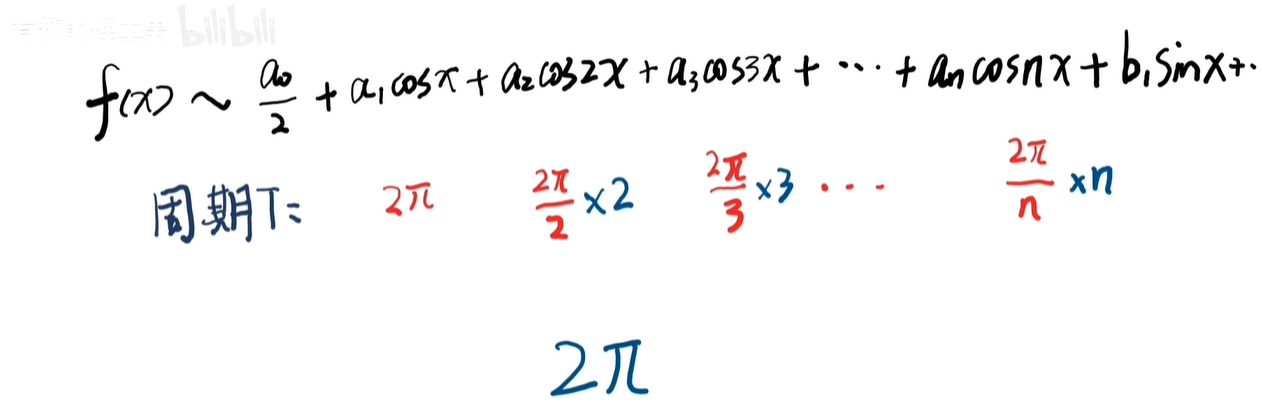 bilibili
f(x) ~ a₀/2 + a₁cosx + a₂cos2x + a₃cos3x + ··· + aₙcosnx + b₁sinx+··
周期T: 2π 2π/2 ×2 2π/3 ×3 ··· 2π/n ×n
2π